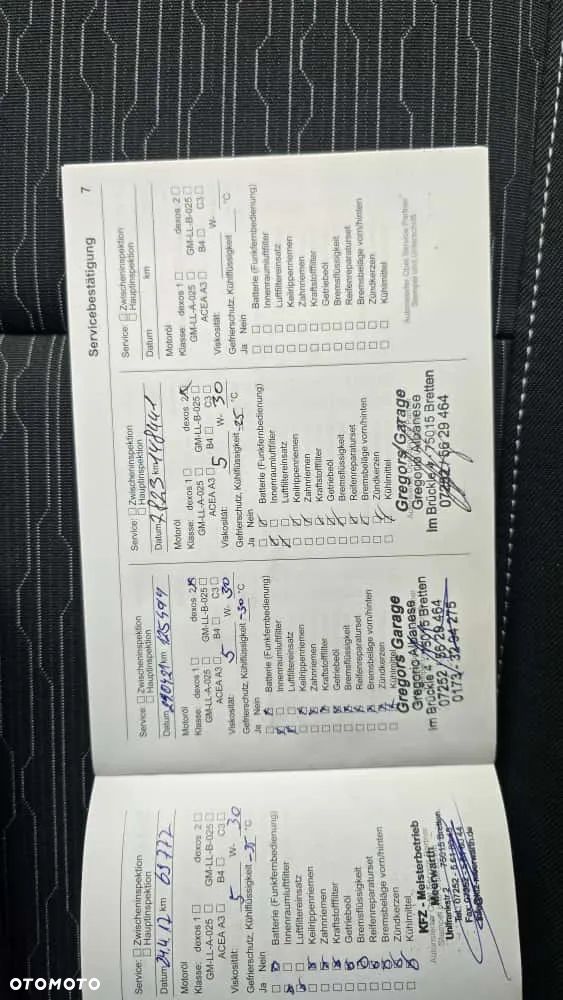 Service: Zwischeninspektion
Hauptinspektion
Datum 24.4.17 km 69772
Motoröl
Klasse: dexos 1 dexos 2
GM-LL-A-025 GM-LL-B-025
ACEA A3 B4 C3
Viskosität: 5 W- 30
Gefrierschutz, Kühlflüssigkeit °C
Ja Nein
Batterie (Funkfernbedienung)
Innenraumluftfilter
Luftfiltereinsatz
Keilrippenriemen
Zahnriemen
Kraftstofffilter
Getriebeöl
Bremsflüssigkeit
Reifenreparaturset
Bremsbeläge vorn/hinten
Zündkerzen
Kühlmittel
KFZ - Meisterbetrieb
Meerwardt
75015 Bretten
Service: Zwischeninspektion
Hauptinspektion
Datum km 125494
Motoröl
Klasse: dexos 1 dexos 2
GM-LL-A-025 GM-LL-B-025
ACEA A3 B4 C3
Viskosität: 5 W- 30
Gefrierschutz, Kühlflüssigkeit -30 °C
Ja Nein
Batterie (Funkfernbedienung)
Innenraumluftfilter
Luftfiltereinsatz
Keilrippenriemen
Zahnriemen
Kraftstofffilter
Getriebeöl
Bremsflüssigkeit
Reifenreparaturset
Bremsbeläge vorn/hinten
Zündkerzen
Kühlmittel
Gregors Garage
Gregorio Albanese
Im Brückle 4, 75015 Bretten
07252 / 56 29 464
0173 / 32 94 275
Servicebestätigung 7
Service: Zwischeninspektion
Hauptinspektion
Datum km 148441
Motoröl
Klasse: dexos 1 dexos 2
GM-LL-A-025 GM-LL-B-025
ACEA A3 B4 C3
Viskosität: 5 W- 30
Gefrierschutz, Kühlflüssigkeit -25 °C
Ja Nein
Batterie (Funkfernbedienung)
Innenraumluftfilter
Luftfiltereinsatz
Keilrippenriemen
Zahnriemen
Kraftstofffilter
Getriebeöl
Bremsflüssigkeit
Reifenreparaturset
Bremsbeläge vorn/hinten
Zündkerzen
Kühlmittel
Gregors Garage
Gregorio Albanese
Im Brückle 4, 75015 Bretten
07252 / 56 29 464
Service: Zwischeninspektion
Hauptinspektion
Datum km
Motoröl
Klasse: dexos 1 dexos 2
GM-LL-A-025 GM-LL-B-025
ACEA A3 B4 C3
Viskosität: W-
Gefrierschutz, Kühlflüssigkeit °C
Ja Nein
Batterie (Funkfernbedienung)
Innenraumluftfilter
Luftfiltereinsatz
Keilrippenriemen
Zahnriemen
Kraftstofffilter
Getriebeöl
Bremsflüssigkeit
Reifenreparaturset
Bremsbeläge vorn/hinten
Zündkerzen
Kühlmittel
Autorisierter Opel Service Partner
Stempel und Unterschrift
OTOMOTO